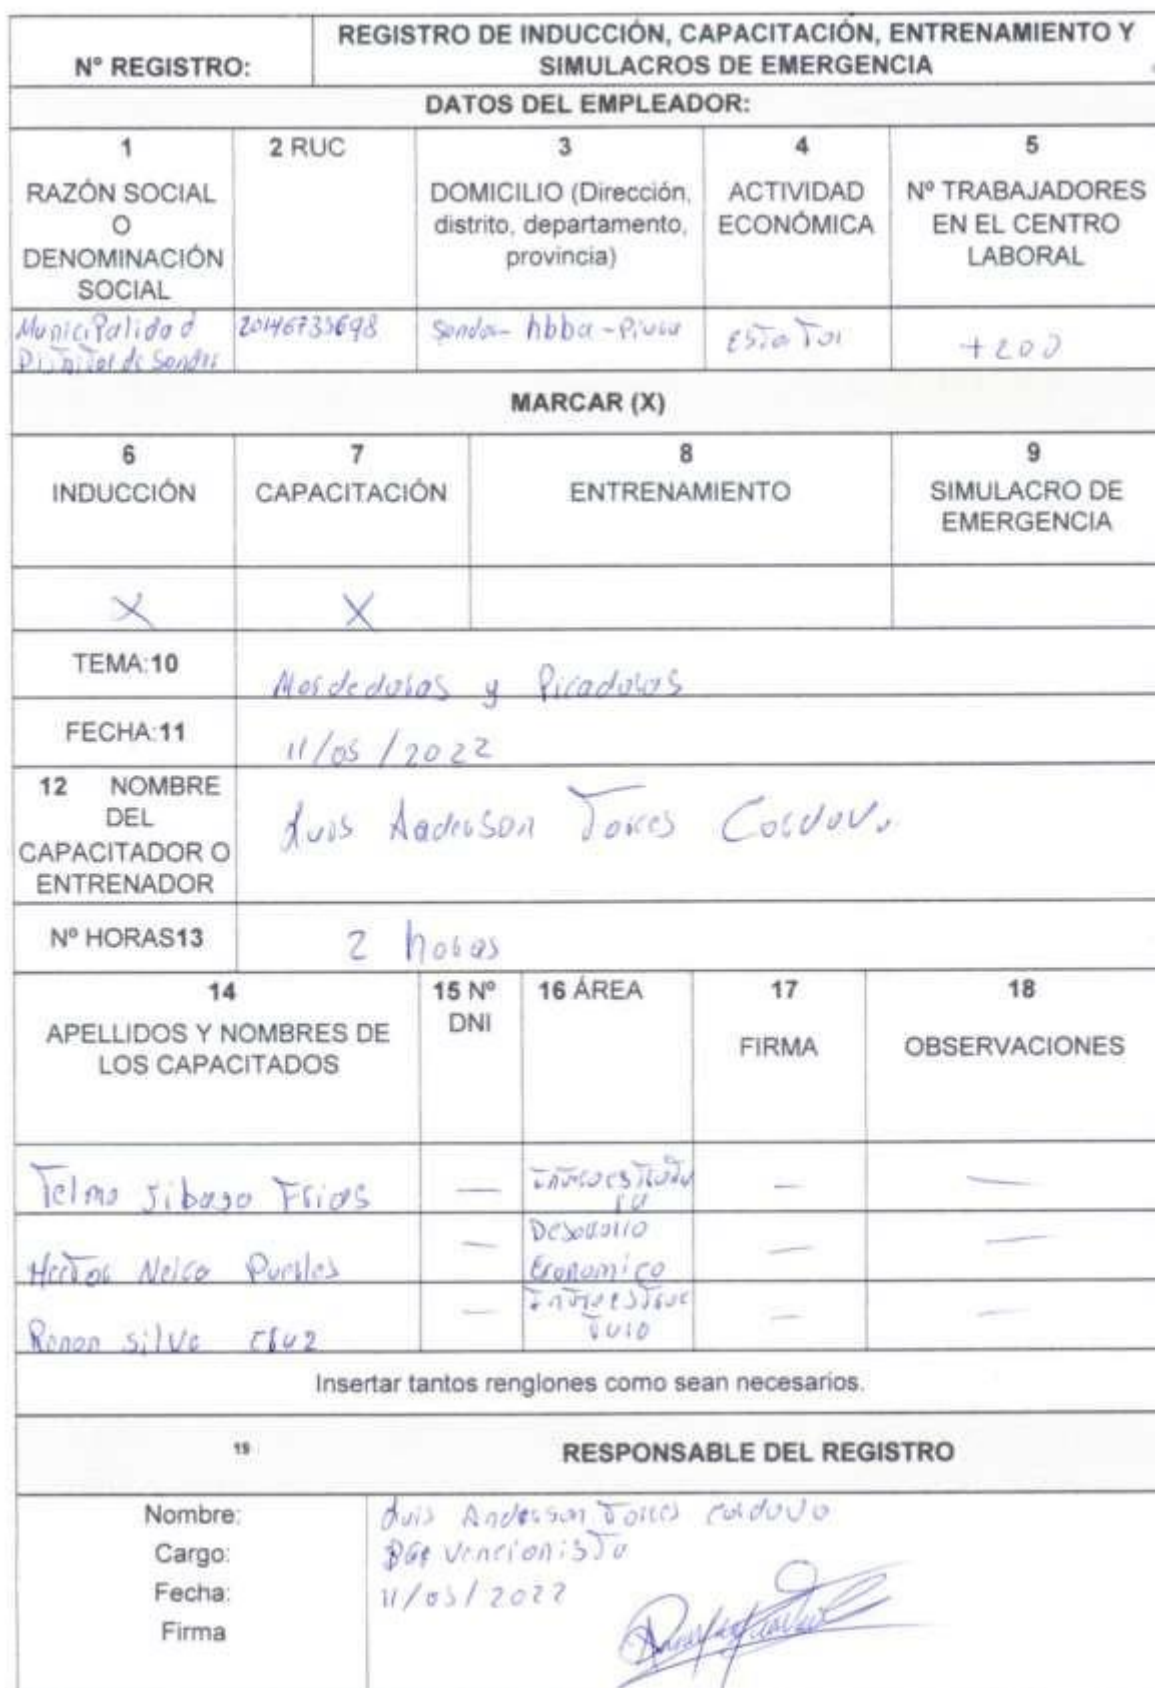 Nº REGISTRO:
REGISTRO DE INDUCCIÓN, CAPACITACIÓN, ENTRENAMIENTO Y
SIMULACROS DE EMERGENCIA
DATOS DEL EMPLEADOR:
1
RAZÓN SOCIAL
O
DENOMINACIÓN
SOCIAL
2 RUC
3
DOMICILIO (Dirección,
distrito, departamento,
provincia)
4
ACTIVIDAD
ECONÓMICA
5
Nº TRABAJADORES
EN EL CENTRO
LABORAL
Municipalidad
Distrital de Sondor
Sondor - hbba - Piura
Estatal
+200
MARCAR (X)
6
INDUCCIÓN
7
CAPACITACIÓN
8
ENTRENAMIENTO
9
SIMULACRO DE
EMERGENCIA
X
X
TEMA:10
Mordeduras y Picaduras
FECHA:11
11/05/2022
12 NOMBRE
DEL
CAPACITADOR O
ENTRENADOR
Luis Anderson Torres Cordova
Nº HORAS13
2 horas
14
APELLIDOS Y NOMBRES DE
LOS CAPACITADOS
15 Nº
DNI
16 ÁREA
17
FIRMA
18
OBSERVACIONES
Telmo Jibaja Frias
—
Infraestructu
ra
—
—
Hector Neira
—
Desarrollo
Economico
—
—
Ronan Silva Cruz
—
Infraestruc
tura
—
—
Insertar tantos renglones como sean necesarios.
19
RESPONSABLE DEL REGISTRO
Nombre:
Luis Anderson Torres Cordova
Cargo:
Prevencionista
Fecha:
11/05/2022
Firma